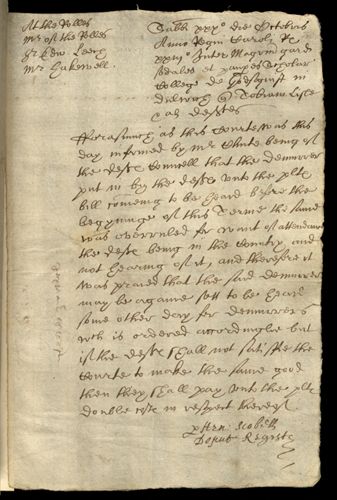 At the Rolles
Mr of the Rolles
Sr Edw Leech
Mr Hakewell.
Sabbti xxxo die Octobris
Anno Regni Caroli &c
Inter Magrm gard
sodales et paupes Scolar
Colleg de Gods guift in
dulwich
deftes
Forasmuch as this Court was this
day informed by Mr White being of
the deftes Councell that the demurrer
put in by the deftes unto the plts
bill coming to be heard before the
begynninge of this Terme the same
was overruled for want of attendance
the deftes being in the Country and
not hearing of it, and therefore it
was praied that the said demurrer
may be againe sett to be heard
some other day for demurrers
wch is ordered accordinglie but
if the deftes shall not satisfie the
Courte to make the same good
then they shall pay unto the plts
double costs in respect thereof.
p Hen Scobell
Deput Registr